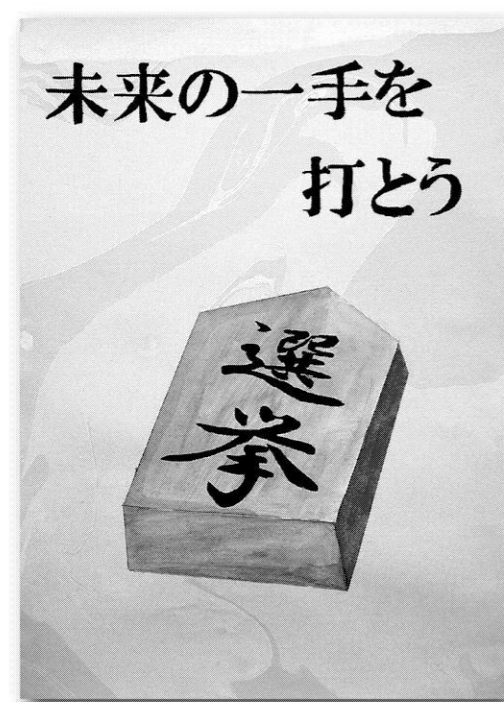 未来の一手を
打とう
選挙